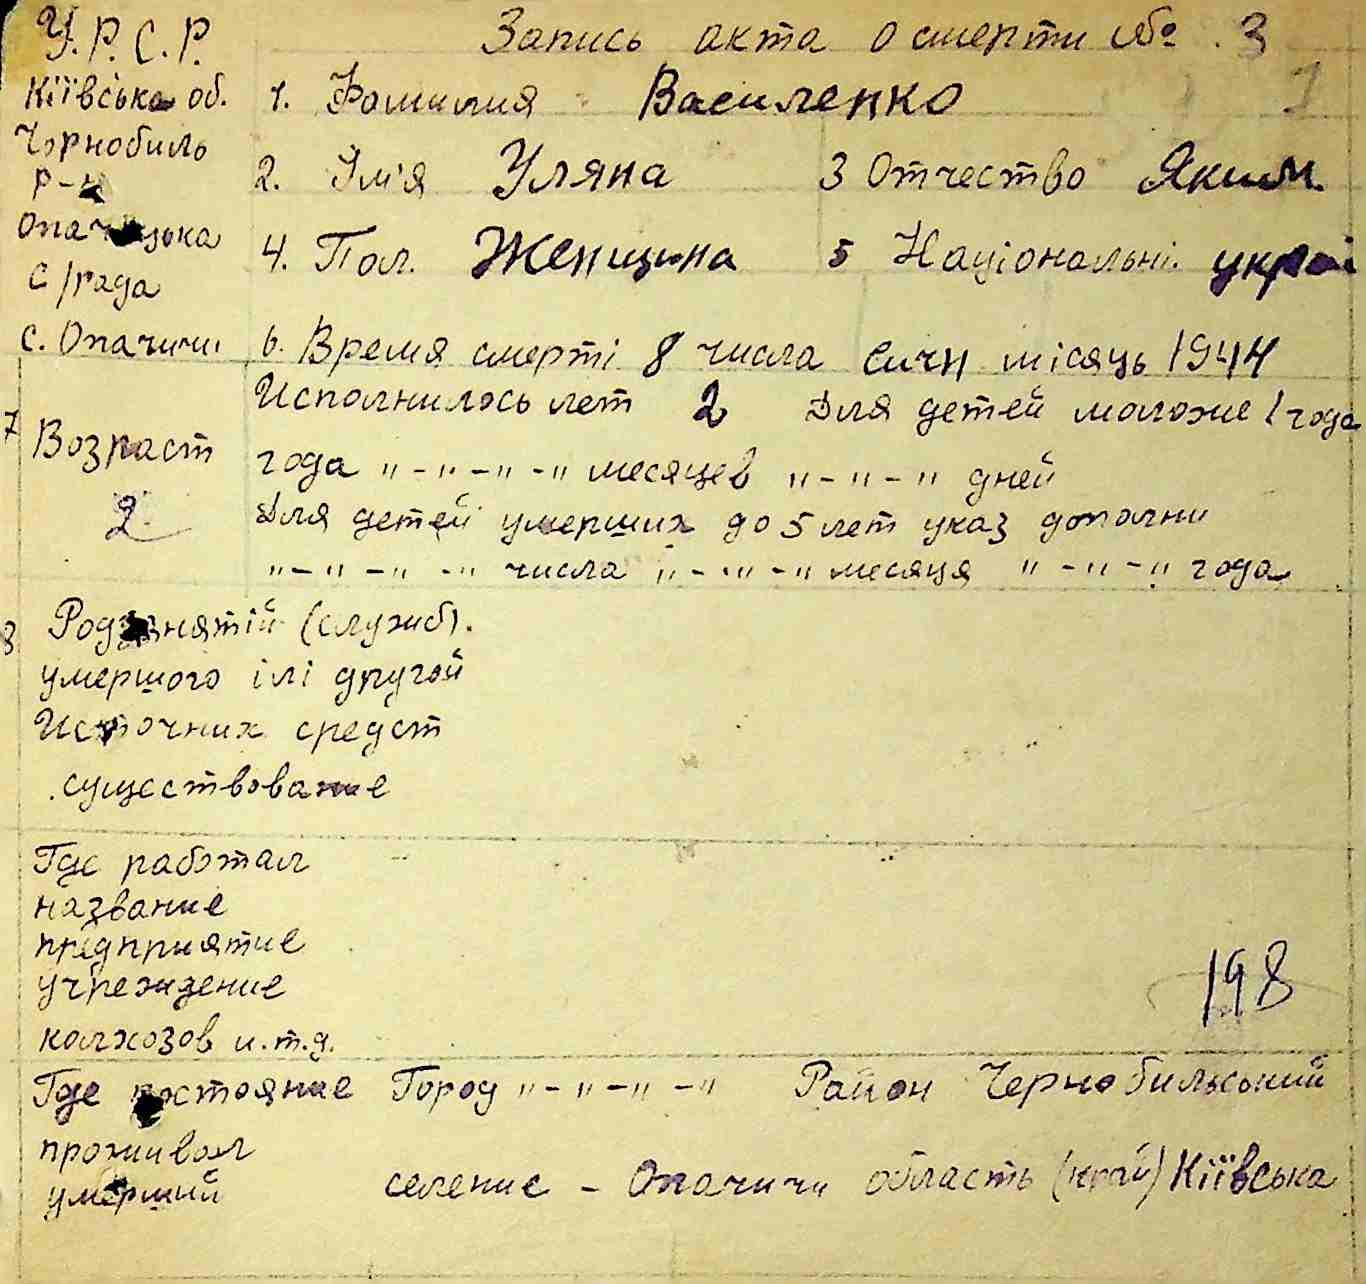 У.Р.С.Р. Запись акта о смерти № 3
Кіївська об. 1. Фамилия Василенко 1
Чорнобиль р-н 2. Ім'я Уляна 3 Отчество Яким.
Опачицька с/рада 4. Пол. Женщина 5 Національні. украї
с. Опачичи 6. Время смерті 8 числа сичн місяць 1944
7 Возраст Исполнилось лет 2 Для детей моложе 1 года
года "-"-"-" месяцев "-"-" дней
2. Для детей умерших до 5 лет указ дополни
"-"-"-" числа "-"-" месяця "-"-" года
8 Род занятій (служб).
умершого ілі другой
Источних средст
существование
Где работал
название
предприятие
учреждение 198
колхозов и.т.д.
Где постояние Город "-"-"-" Район Чернобильський
проживал
умерший селение - Опачичи область (край) Кіївська